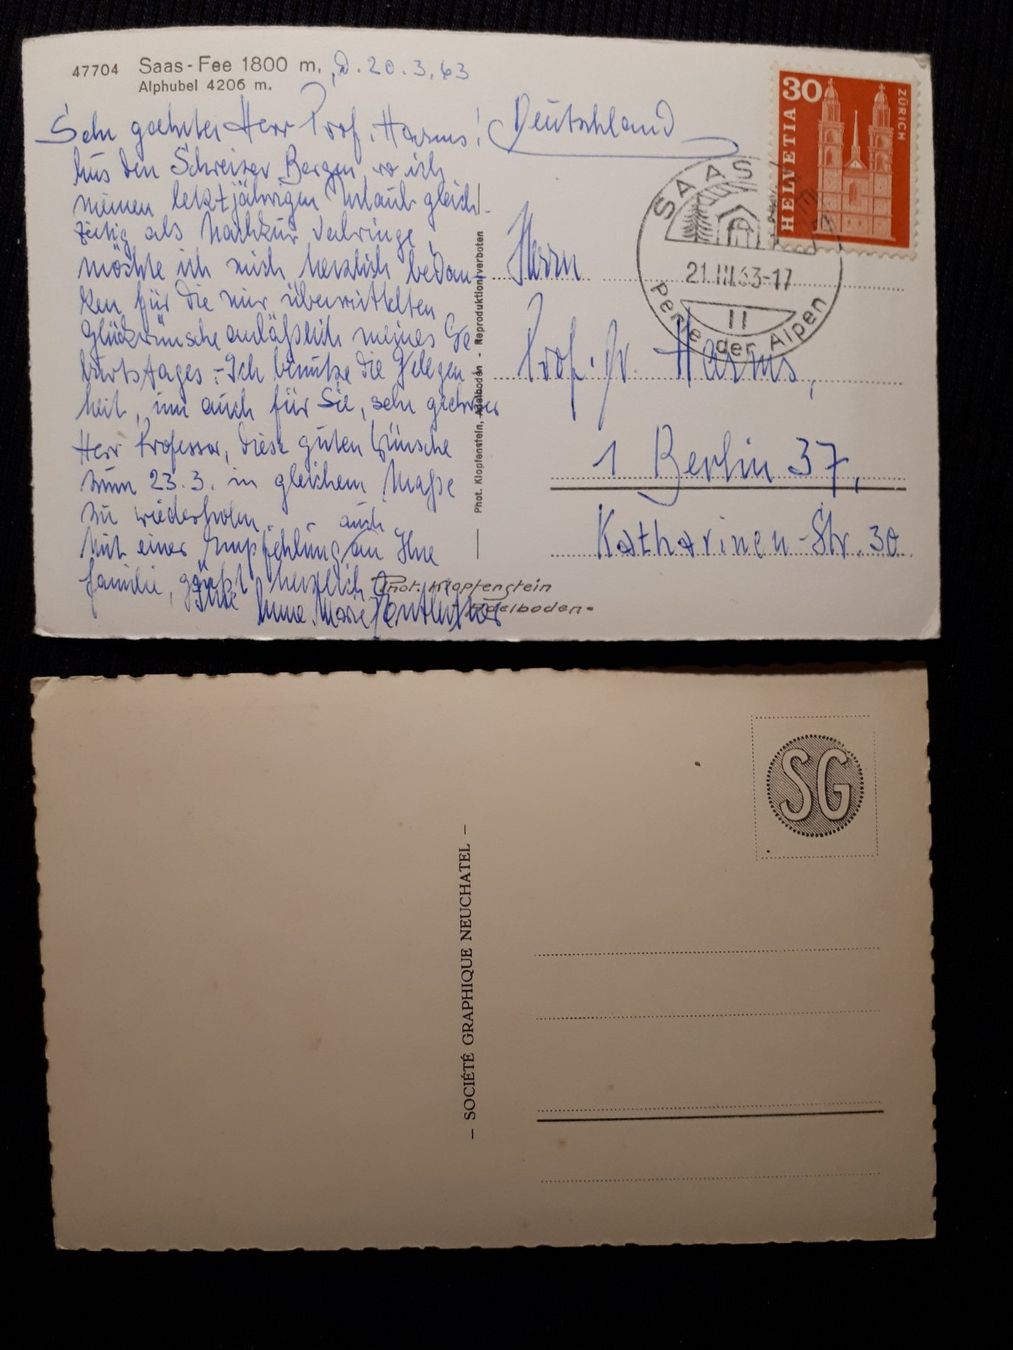 47704 Saas-Fee 1800 m, d. 20.3.63
Alphubel 4206 m.
Sehr geehrter Herr Prof. Harms!
Aus den Schweizer Bergen, wo ich
meinen letztjährigen Urlaub gleich-
zeitig als Nachkur verbringe
möchte ich mich herzlich bedan-
ken für die mir übermittelten
Glückwünsche anläßlich meines Ge-
burtstages. - Ich benutze die Gelegen-
heit, um auch für Sie, sehr geehrter
Herr Professor, diese guten Wünsche
zum 23.3. in gleichem Maße
zu wiederholen.
Mit einer Empfehlung auch an Ihre
Familie, grüßt herzlich
Ihre Anna Marie
Phot. Klopfenstein, Adelboden - Reproduktion verboten
Phot. Klopfenstein
Adelboden-
Deutschland
Herrn
Prof. Dr. Harms,
1 Berlin 37,
Katharinen-Str. 30
30
HELVETIA
ZÜRICH
SAAS
21.III.63-17
II
Perle der Alpen
SG
– SOCIÉTÉ GRAPHIQUE NEUCHATEL –